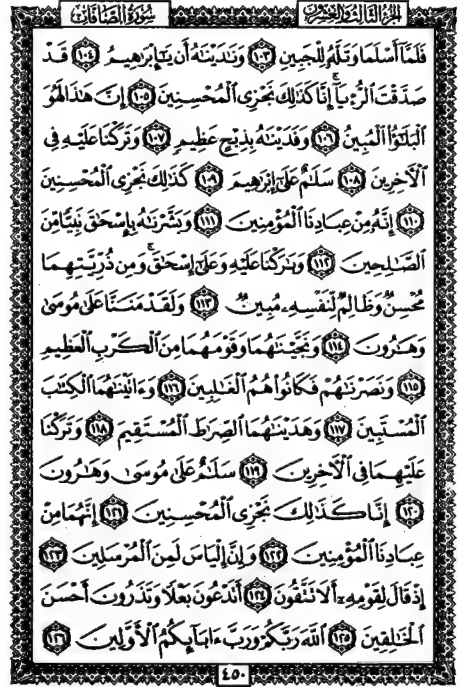 سُورَةُ الصَّافَّاتِ الجُزءُ الثَّالِثُ وَالعِشْرُونَ
فَلَمَّآ أَسْلَمَا وَتَلَّهُۥ لِلْجَبِينِ ١٠٣ وَنَٰدَيْنَٰهُ أَن يَٰٓإِبْرَٰهِيمُ ١٠٤ قَدْ
صَدَّقْتَ ٱلرُّءْيَآ ۚ إِنَّا كَذَٰلِكَ نَجْزِى ٱلْمُحْسِنِينَ ١٠٥ إِنَّ هَٰذَا لَهُوَ
ٱلْبَلَٰٓؤُا۟ ٱلْمُبِينُ ١٠٦ وَفَدَيْنَٰهُ بِذِبْحٍ عَظِيمٍ ١٠٧ وَتَرَكْنَا عَلَيْهِ فِى
ٱلْءَاخِرِينَ ١٠٨ سَلَٰمٌ عَلَىٰٓ إِبْرَٰهِيمَ ١٠٩ كَذَٰلِكَ نَجْزِى ٱلْمُحْسِنِينَ
١١٠ إِنَّهُۥ مِنْ عِبَادِنَا ٱلْمُؤْمِنِينَ ١١١ وَبَشَّرْنَٰهُ بِإِسْحَٰقَ نَبِيًّا مِّنَ
ٱلصَّٰلِحِينَ ١١٢ وَبَٰرَكْنَا عَلَيْهِ وَعَلَىٰٓ إِسْحَٰقَ ۚ وَمِن ذُرِّيَّتِهِمَا
مُحْسِنٌ وَظَالِمٌ لِّنَفْسِهِۦ مُبِينٌ ١١٣ وَلَقَدْ مَنَنَّا عَلَىٰ مُوسَىٰ
وَهَٰرُونَ ١١٤ وَنَجَّيْنَٰهُمَا وَقَوْمَهُمَا مِنَ ٱلْكَرْبِ ٱلْعَظِيمِ
١١٥ وَنَصَرْنَٰهُمْ فَكَانُوا۟ هُمُ ٱلْغَٰلِبِينَ ١١٦ وَءَاتَيْنَٰهُمَا ٱلْكِتَٰبَ
ٱلْمُسْتَبِينَ ١١٧ وَهَدَيْنَٰهُمَا ٱلصِّرَٰطَ ٱلْمُسْتَقِيمَ ١١٨ وَتَرَكْنَا
عَلَيْهِمَا فِى ٱلْءَاخِرِينَ ١١٩ سَلَٰمٌ عَلَىٰ مُوسَىٰ وَهَٰرُونَ
١٢٠ إِنَّا كَذَٰلِكَ نَجْزِى ٱلْمُحْسِنِينَ ١٢١ إِنَّهُمَا مِنْ
عِبَادِنَا ٱلْمُؤْمِنِينَ ١٢٢ وَإِنَّ إِلْيَاسَ لَمِنَ ٱلْمُرْسَلِينَ ١٢٣
إِذْ قَالَ لِقَوْمِهِۦٓ أَلَا تَتَّقُونَ ١٢٤ أَتَدْعُونَ بَعْلًا وَتَذَرُونَ أَحْسَنَ
ٱلْخَٰلِقِينَ ١٢٥ ٱللَّهَ رَبَّكُمْ وَرَبَّ ءَابَآئِكُمُ ٱلْأَوَّلِينَ ١٢٦
٤٥٠